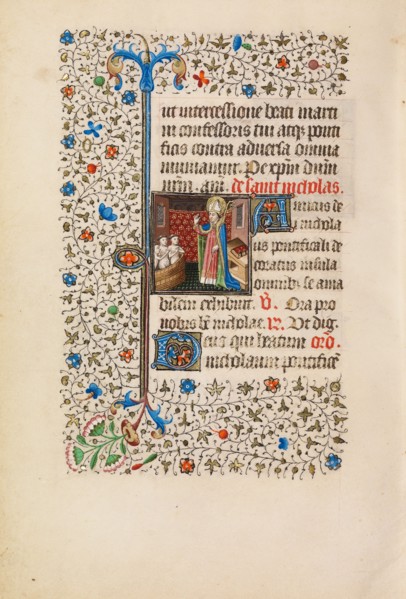 ut intercessione beati marti
ni confessoris tui atq; ponti
ficis contra adversa omnia
muniamur. Per xp̄m dn̄m
nr̄m. am̄. de saint nicholas.
Amicus dei
nichola
us pontificali de
coratus infula
omnibꝰ se ama
bilem exhibuit. V̄. Ora pro
nobis bt̄e nicholae. R̄. Ut dig.
Deus qui beatum orō.
nicholaum pontificē